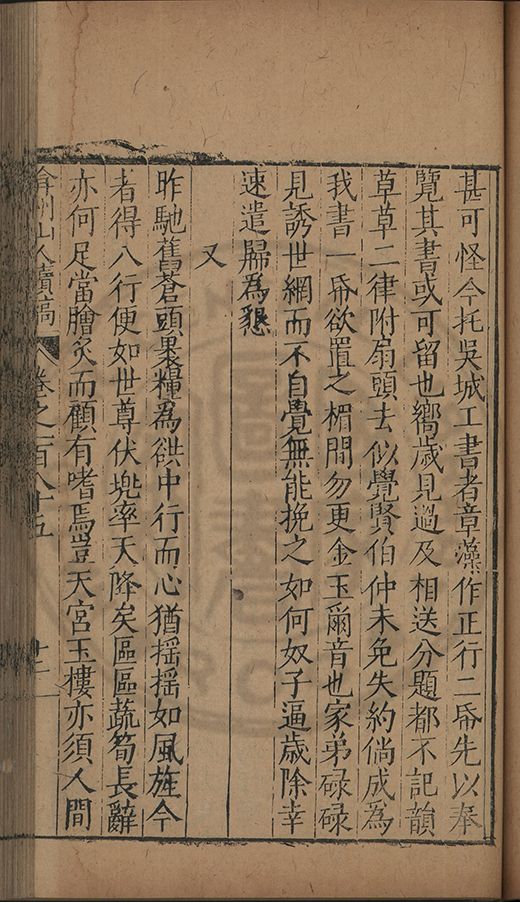 甚可怪今托吳城工書者章藻作正行二帋先以奉
覽其書或可留也嚮歲見過及相送分題都不記韻
草草二律附扇頭去似覺賢伯仲未免失約倘成爲
我書一帋欲置之楣間勿更金玉爾音也家弟碌碌
見誘世網而不自覺無能挽之如何奴子逼歲除幸
速遣歸爲懇
又
昨馳舊蒼頭裹糧爲欱中行而心猶搖搖如風旌今
者得八行便如世尊伏兠率天降矣區區蔬筍長辭
亦何足當膾炙而顧有嗜焉豈天宮玉樓亦須人間
弇州山人續稿 卷之一百八十五 十二